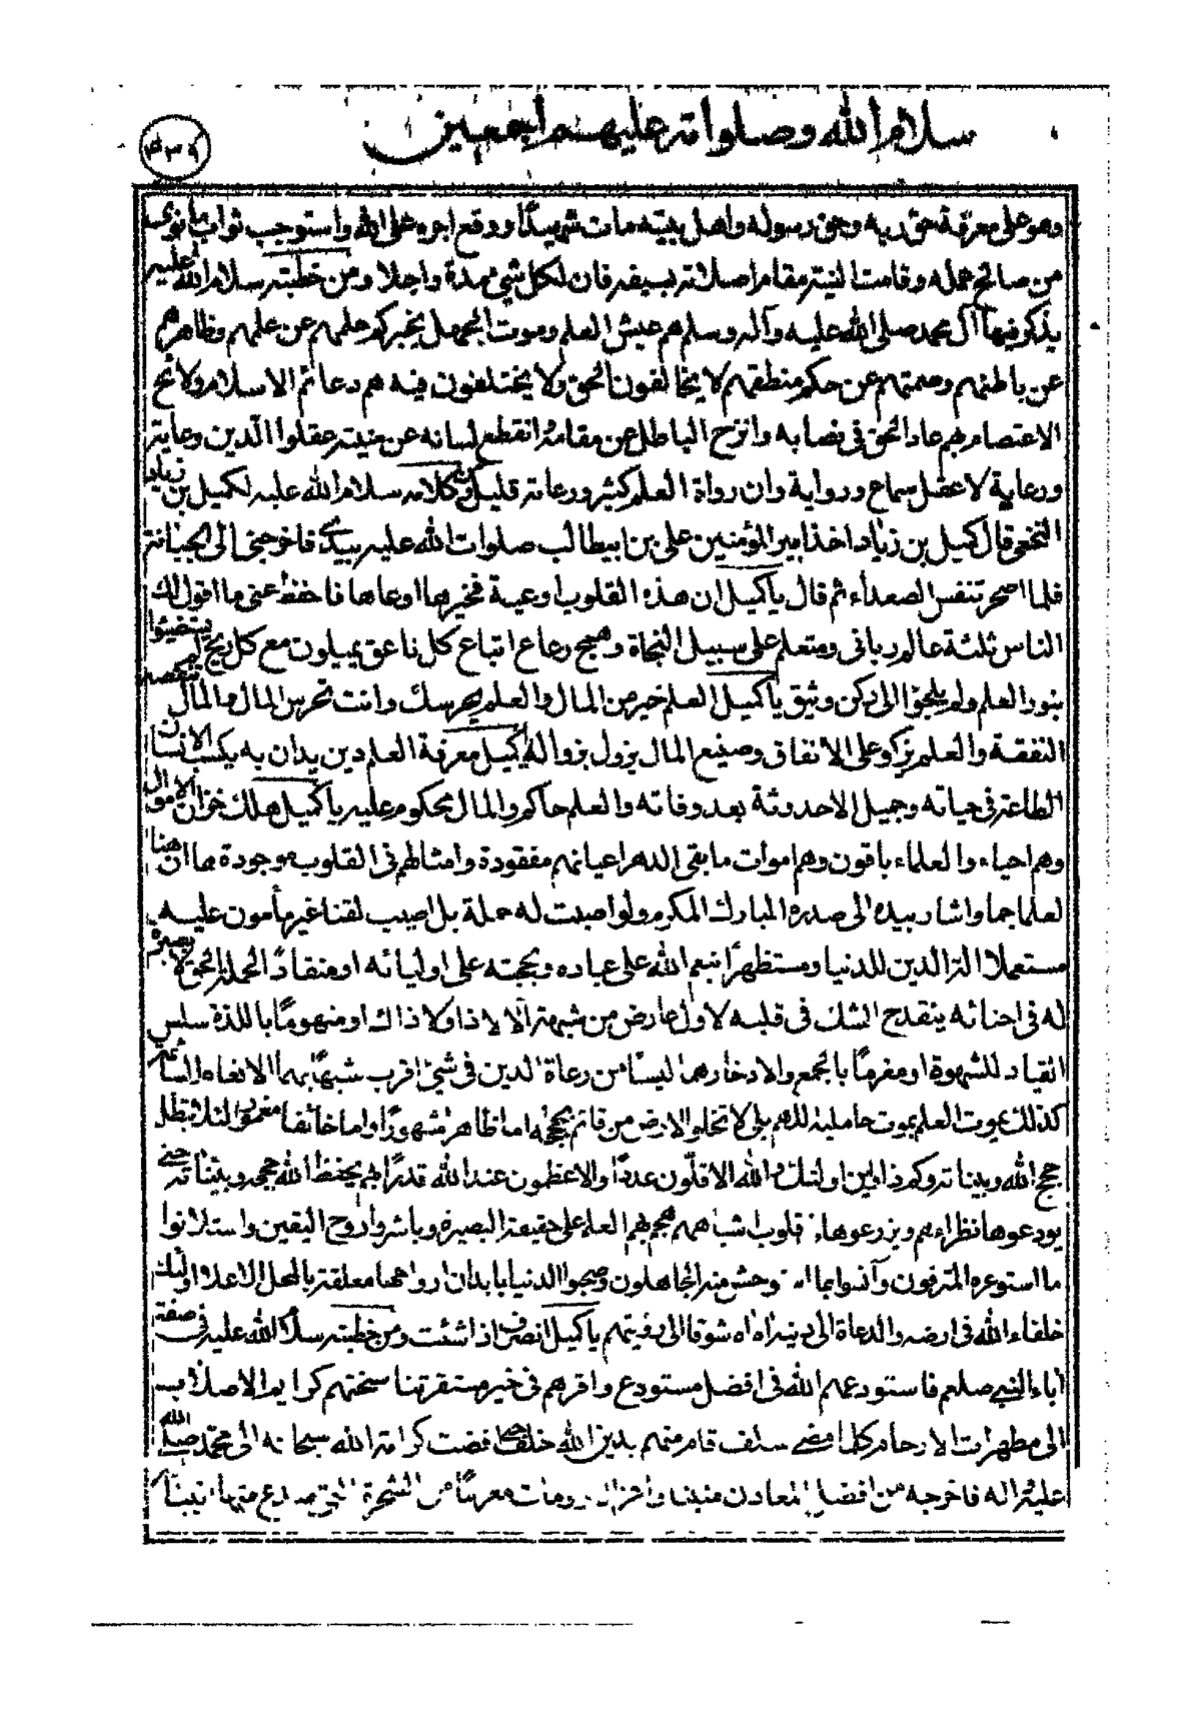 سلام الله وصلواته عليهم اجمعين
وهو على معرفة حق ربه وحق رسوله واهل بيته مات شهيدًا ووقع اجره على الله واستوجب ثواب ما نوى
من صالح عمله وقامت النية مقام اصلاته بسيفه فان لكل شي مدة واجلا ومن خطبته سلام الله عليه
يذكر فيها آل محمد صلى الله عليه وآله وسلم هم عيش العلم وموت الجهل يخبركم حلمهم عن علمهم وظاهرهم
عن باطنهم وصمتهم عن حكم منطقهم لا يخالفون الحق ولا يختلفون فيه هم دعائم الاسلام وولائج
الاعتصام بهم عاد الحق فى نصابه وانزح الباطل عن مقامه وانقطع لسانه عن منبته عقلوا الدين وعاية
ورعاية لا عقل سماع ورواية وان رواة العلم كثير ورعاته قليل ومن كلامه سلام الله عليه لكميل بن زياد
النخعى قال كميل بن زياد اخذ امير المؤمنين على بن ابيطالب صلوات الله عليه بيدى فاخرجنى الى الجبانة
فلما اصحر تنفس الصعداء ثم قال يا كميل ان هذه القلوب اوعية فخيرها اوعاها فاحفظ عنى ما اقول لك
الناس ثلثة عالم ربانى ومتعلم على سبيل النجاة وهمج رعاع اتباع كل ناعق يميلون مع كل ريح لم يستضيئوا
بنور العلم ولم يلجؤا الى ركن وثيق يا كميل العلم خير من المال والعلم يحرسك وانت تحرس المال والمال تنقصه
النفقة والعلم يزكو على الانفاق وصنيع المال يزول بزواله يا كميل معرفة العلم دين يدان به يكسب الانسان
الطاعة فى حياته وجميل الاحدوثة بعد وفاته والعلم حاكم والمال محكوم عليه يا كميل هلك خزان الاموال
وهم احياء والعلماء باقون وهم اموات ما بقى الدهر اعيانهم مفقودة وامثالهم فى القلوب موجودة ها ان هنا
لعلما جما واشار بيده الى صدره المبارك المكرم ولو اصبت له حملة بل اصيب لقنا غير مأمون عليه
مستعملا الة الدين للدنيا ومستظهرًا بنعم الله على عباده وبحجته على اوليائه او منقادًا لحملة الحق لا بصيرة
له فى احنائه ينقدح الشك فى قلبه لاول عارض من شبهة الا لا ذا ولا ذاك او منهومًا باللذة سلس
القياد للشهوة او مغرمًا بالجمع والادخار هما ليسا من رعاة الدين فى شئ اقرب شبهًا بهما الانعام السائمة
كذلك يموت العلم بموت حامليه اللهم بلى لا تخلو الارض من قائم بحجة اما ظاهرًا مشهورًا واما خائفا مغمورًا لئلا تبطل
حجج الله وبيناته وكم ذا واين اولئك والله الاقلون عددًا والاعظمون عند الله قدرًا بهم يحفظ الله حججه وبيناته حتى
يودعوها نظراءهم ويزرعوها فى قلوب اشباههم هجم بهم العلم على حقيقة البصيرة وباشروا روح اليقين واستلانوا
ما استوعره المترفون وآنسوا بما استوحش منه الجاهلون وصحبوا الدنيا بابدان ارواحها معلقة بالمحل الاعلا اولئك
خلفاء الله فى ارضه والدعاة الى دينه اه اه شوقا الى رؤيتهم يا كميل انصرف اذا شئت ومن خطبته سلام الله عليه فى صفة
اباء النبى صلعم فاستودعهم الله فى افضل مستودع واقرهم فى خير مستقر تناسختهم كرايم الاصلاب
الى مطهرات الارحام كلما مضى سلف قام منهم بدين الله خلف حتى افضت كرامة الله سبحانه الى محمد صلى الله
عليه واله فاخرجه من افضل المعادن منبتا واعز الارومات مغرسًا من الشجرة التى صدع منها